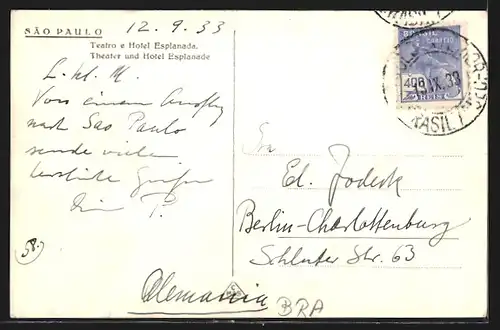 SÃO PAULO
12.9.33
Teatro e Hotel Esplanada.
Theater und Hotel Esplanade
L. kl. M.
Von einem Ausflug
nach Sao Paulo
sende vielen
herzliche Grüße
Dein P.
58.)
BRASIL
CORREIO
400
IX.33
BRASIL
Ed. Jodeck
Berlin-Charlottenburg
Schlüter Str. 63
Alemania
BRA